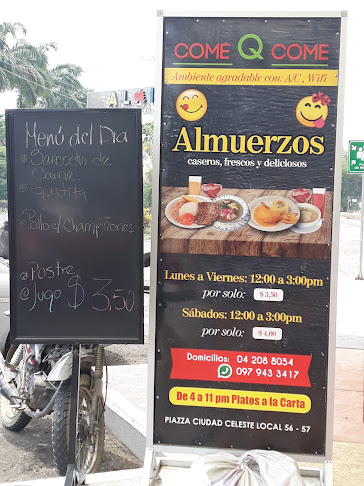 Menú del Dia
Sancocho de
Carne
Guatita
Pollo c/ Champiñones
Postre
Jugo $3,50
COME Q COME
Ambiente agradable con: A/C , Wifi
Almuerzos
caseros, frescos y deliciosos
Lunes a Viernes: 12:00 a 3:00pm
por solo: $ 3,50
Sábados: 12:00 a 3:00pm
por solo: $ 4,00
Domicilios: 04 208 8054
097 943 3417
De 4 a 11 pm Platos a la Carta
PIAZZA CIUDAD CELESTE LOCAL 56 - 57